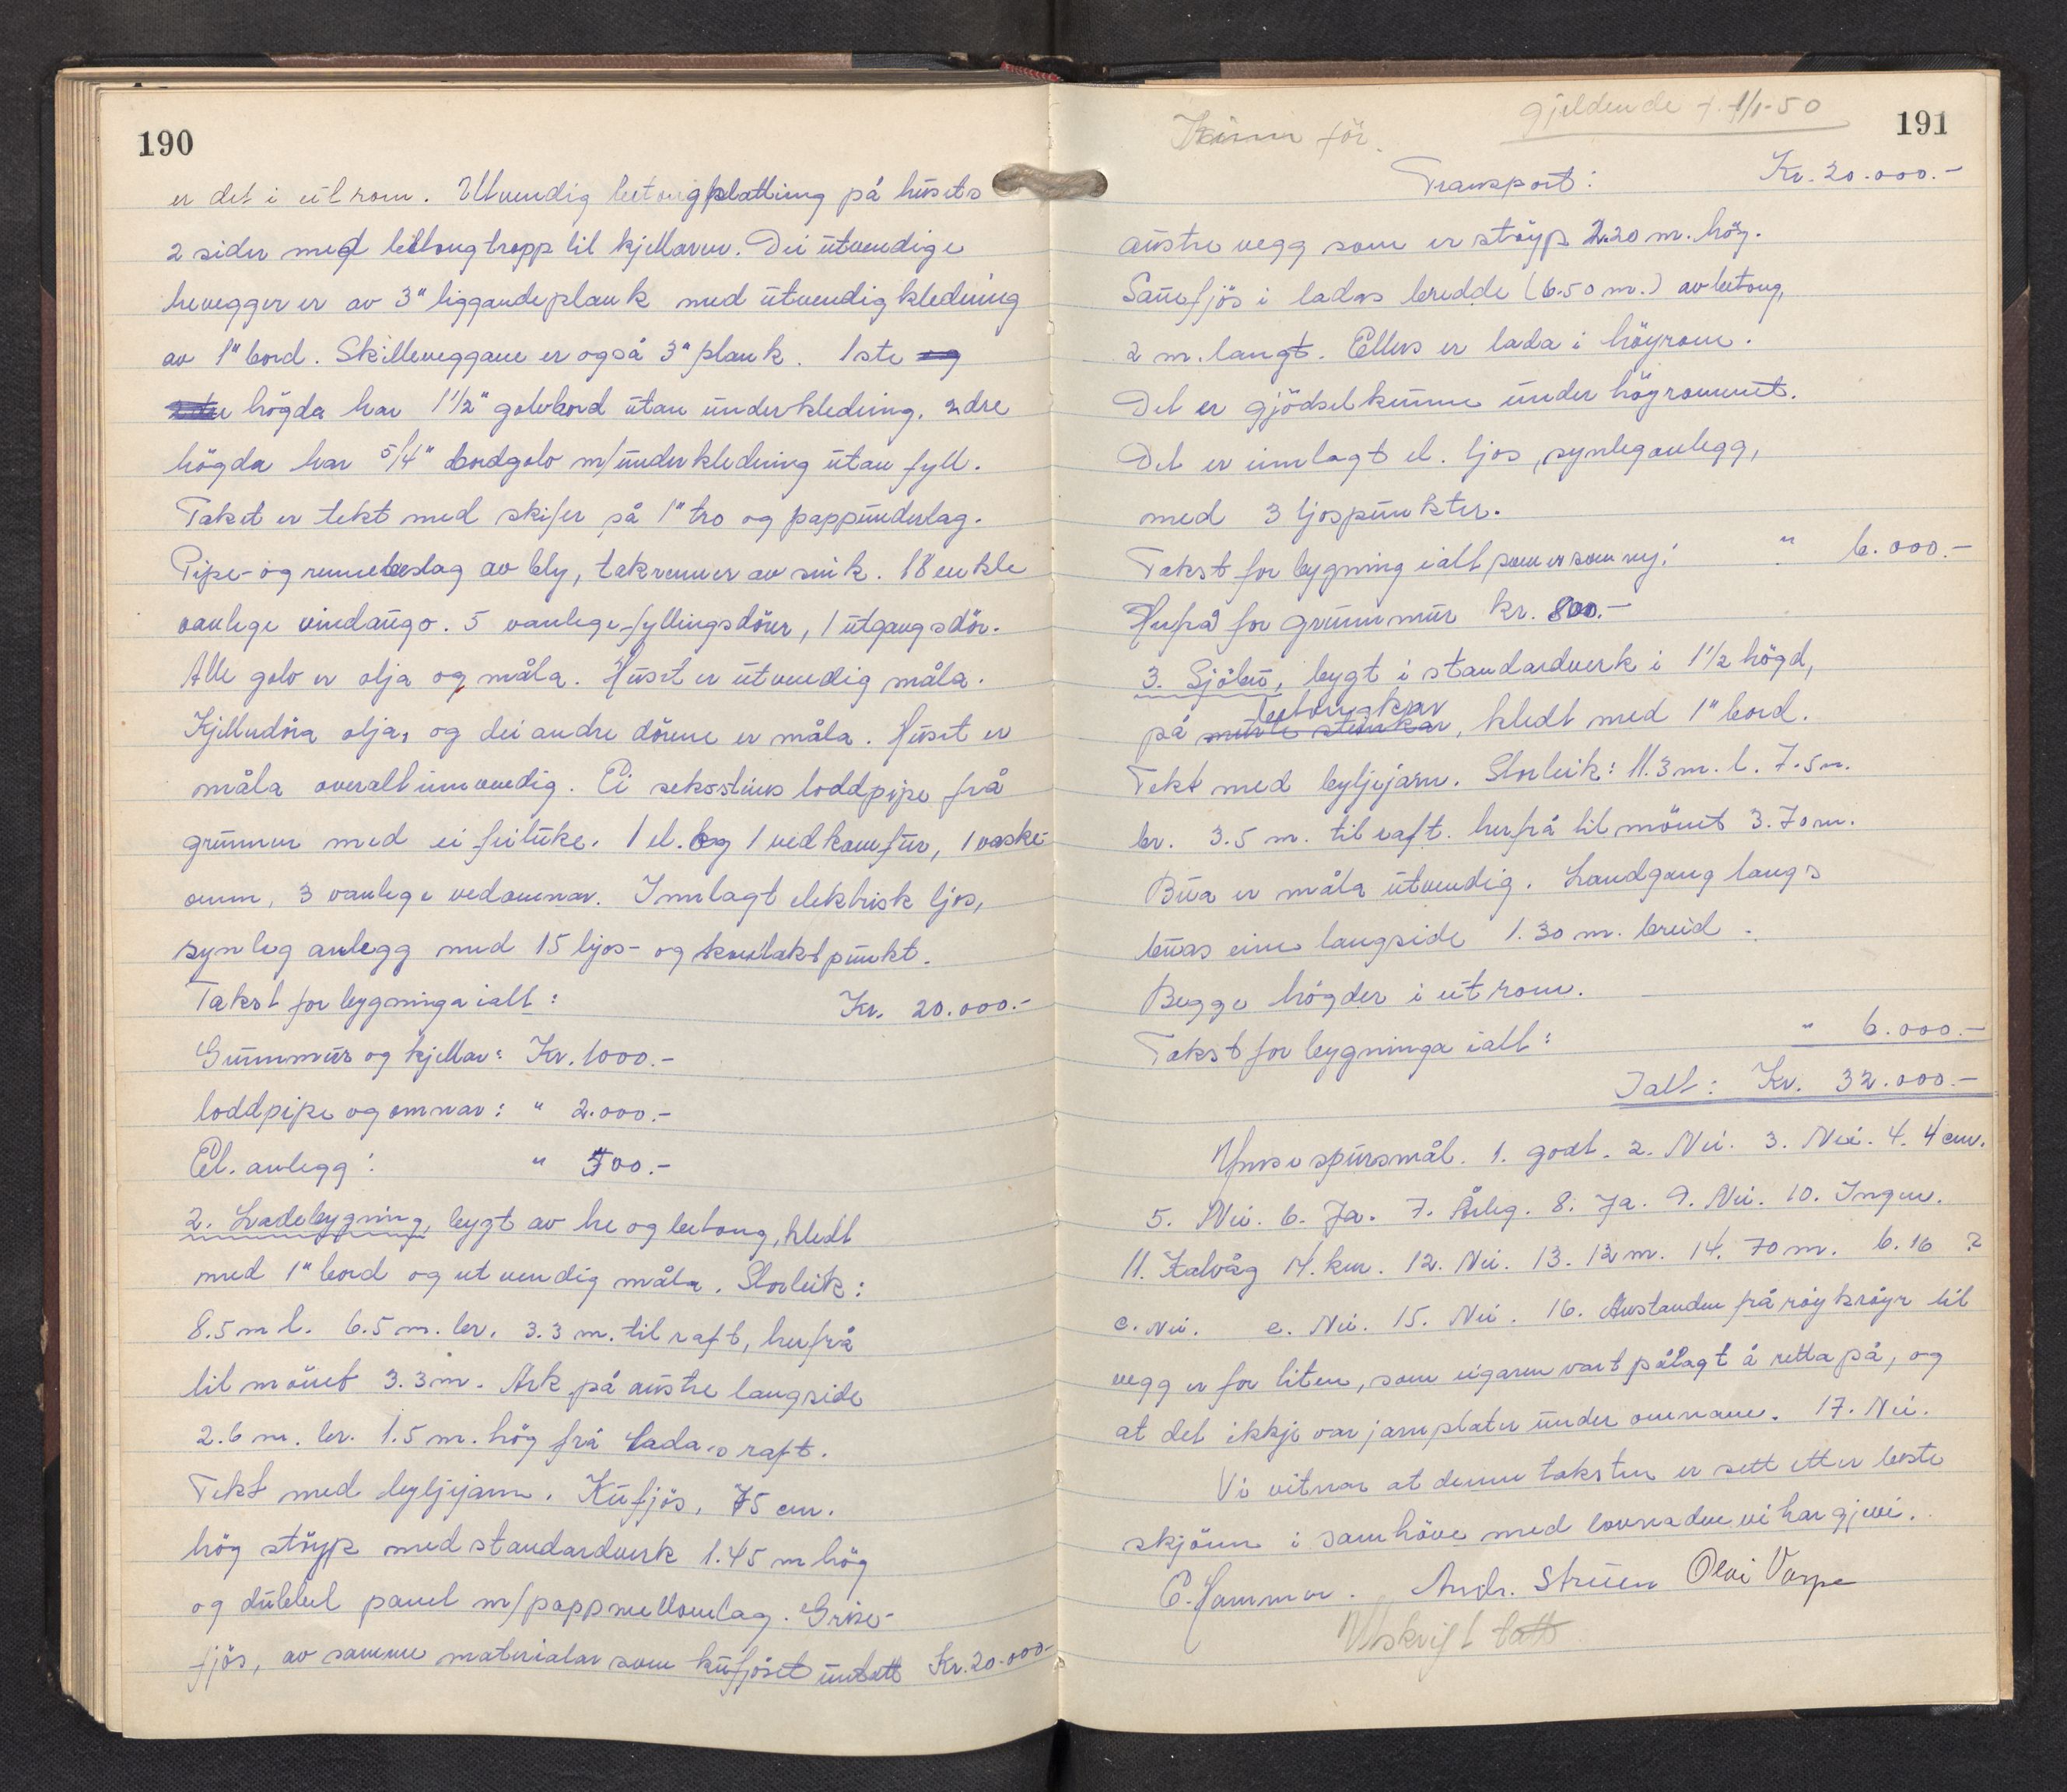 190
er det i eit rom. Utvendig betongplatting på husets
2 sider med betongtropp til kjellaren. Dei utvendige
trevegger er av 3" liggande plank med utvendig kledning
av 1" bord. Skilleveggane er også 3" plank. 1ste og
2dre högda har 1 1/2" golvbord utan underkledning. 2dre
högda har 5/4" bordgolv m/underkledning utan fyll.
Taket er tekt med skifer på 1" tro og pappunderlag.
Pipe- og rennebeslag av bly, takrenner av sink. 18 enkle
vanlege vindaugo. 5 vanlege fyllingsdörer, 1 utgangsdör.
Alle golv er olja og måla. Huset er utvendig måla.
Kjellerdöra olja, og dei andre dörene er måla. Huset er
måla overalt innvendig. Ei seksstins loddpipe frå
grunnen med ei feiluke. 1 el. og 1 vedkomfur, 1 vaske-
omn, 3 vanlege vedomnar. Innlagt elektrisk ljos,
synleg anlegg med 15 ljos- og kontaktpunkt.
Takst for bygninga ialt: Kr. 20.000.-
Grunnmur og kjellar: Kr. 1000.-
loddpipe og omnar: " 2.000.-
El. anlegg: " 700.-
2. Ladebygning, bygt av tre og betong, kledt
med 1" bord og utvendig måla. Storleik:
8.5 m l. 6.5 m. br. 3.3 m. til raft, herfrå
til mönet 3.3 m. Ark på austre langside
2.6 m. br. 1.5 m. hög frå lada's raft.
Tekt med bylgjejarn. Kufjös, 75 cm.
hög stöyp med standardverk 1.45 m hög
og dubbel panel m/pappmellomlag. Grise-
fjös, av samme materialar som kufjöset untatt Kr. 20.000-
gjeldende f. 1/1-50
191
Kinn för.
Transport: Kr. 20.000.-
austre vegg som er stöyp 2.20 m. hög.
Sauefjös i ladas bredde (6.50 m.) av betong,
2 m. langt. Ellers er lada i höyrom.
Det er gjödselkumme under höyrommet.
Det er innlagt el. ljos, synleg anlegg,
med 3 ljospunkter.
Takst for bygning ialt som er som ny: " 6.000.-
Herfrå for grunnmur kr. 800.-
3. Sjöbu, bygt i standardverk i 1 1/2 högd,
betongkar
på murte steinkar, kledt med 1" bord.
Tekt med bylgjejarn. Storleik: 11.3 m. l. 7.5 m.
br. 3.5 m. til raft. herfrå til mönet 3.70 m.
Bua er måla utvendig. Landgang langs
buas eine langside 1.30 m. breid.
Begge högder i eit rom.
Takst for bygninga ialt: " 6.000.-
Ialt: Kr. 32.000.-
Ymse spursmål. 1. godt. 2. Nei. 3. Nei. 4. 4 cm.
5. Nei. 6. Ja. 7. Årleg. 8. Ja. 9. Nei. 10. Ingen.
11. Kalvåg 14. km. 12. Nei. 13. 12 m. 14. 70 m. b. 16 ?
c. Nei. e. Nei. 15. Nei. 16. Avstanden frå röykröyr til
vegg er for liten, som eigaren vart pålagt å retta på, og
at det ikkje var jarnplater under omnane. 17. Nei.
Vi vitnar at denne taksten er sett etter beste
skjönn i samhöve med lovnaden vi har gjevi.
E. Hammer. Andr. Strüen Olai Varpe
Utskrift tatt